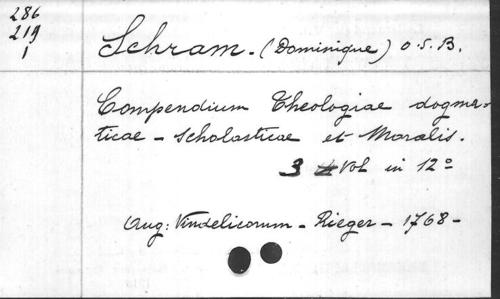 286
219
1
Schram. (Dominique) O.S.B.
Compendium Theologiae dogma-
ticae - scholasticae et Moralis.
3 Vol in 12º
Aug: Vindelicorum - Rieger - 1768 -